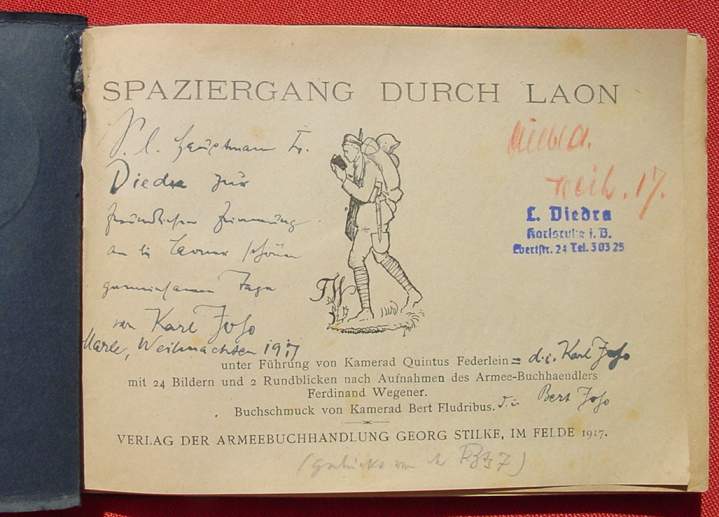 SPAZIERGANG DURCH LAON
Hauptmann
Diedra zur
freundlichen Erinnerung
an die Laoner schönen
gemeinsamen Tage
von Karl Joho
Marle, Weihnachten 1917
Weih. 17.
L. Diedra
Karlsruhe i. B.
Ebertstr. 24 Tel. 303 25
TW
unter Führung von Kamerad Quintus Federlein = d. i. Karl Joho
mit 24 Bildern und 2 Rundblicken nach Aufnahmen des Armee-Buchhaendlers
Ferdinand Wegener.
Buchschmuck von Kamerad Bert Fludribus. d. i. Bert Joho
VERLAG DER ARMEEBUCHHANDLUNG GEORG STILKE, IM FELDE 1917.